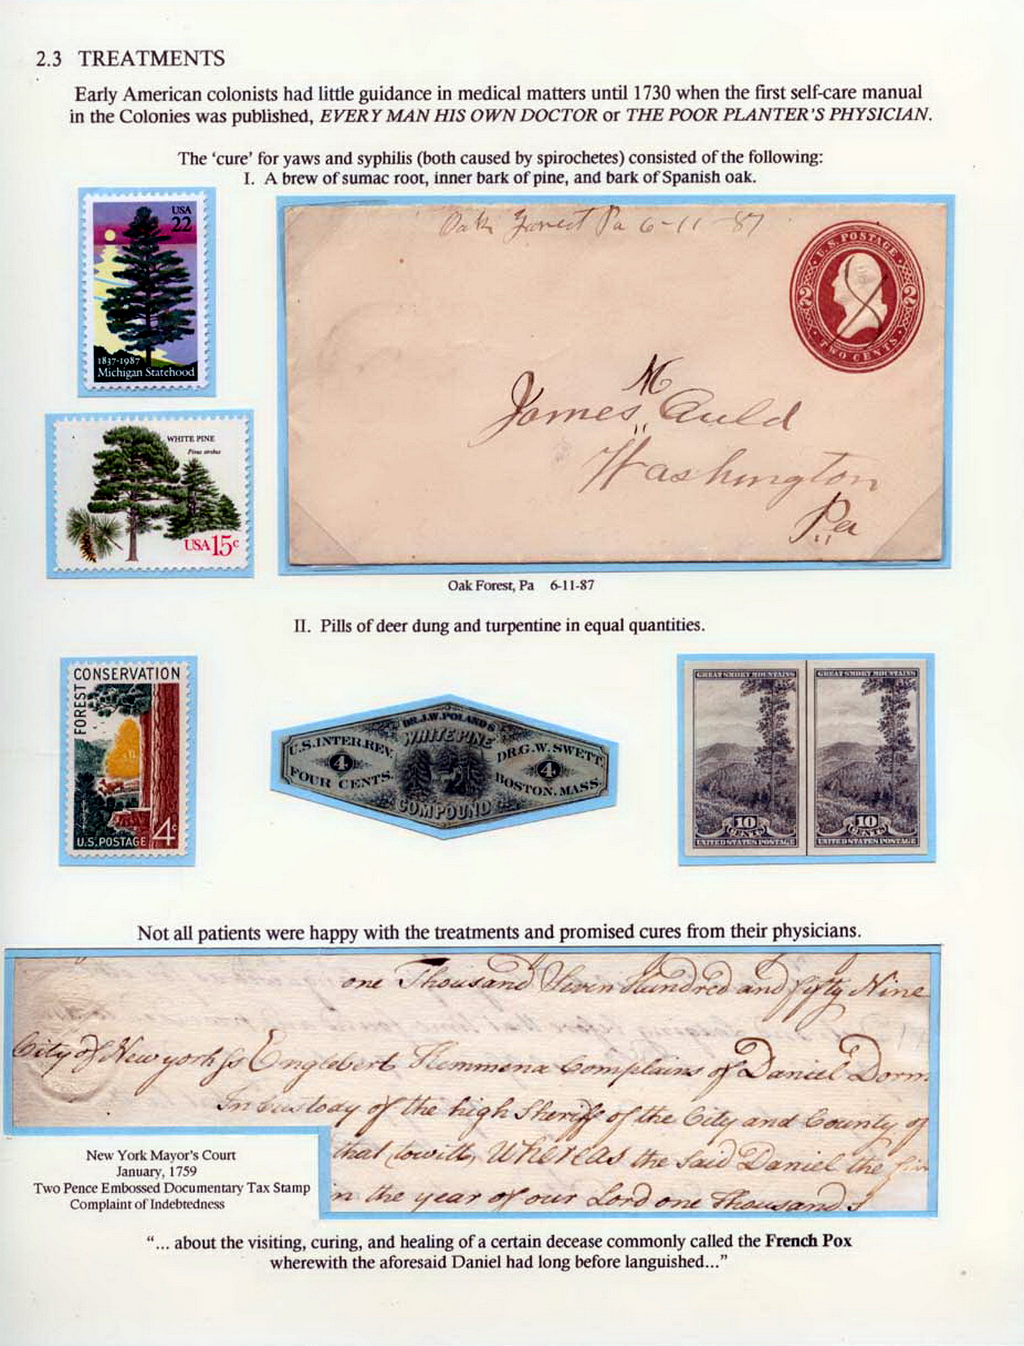 2.3 TREATMENTS
Early American colonists had little guidance in medical matters until 1730 when the first self-care manual
in the Colonies was published, EVERY MAN HIS OWN DOCTOR or THE POOR PLANTER'S PHYSICIAN.
The 'cure' for yaws and syphilis (both caused by spirochetes) consisted of the following:
I. A brew of sumac root, inner bark of pine, and bark of Spanish oak.
USA
22
1837-1987
Michigan Statehood
Oak Forest Pa 6-11-87
U.S. POSTAGE
2 2
TWO CENTS
M
James Auld
Washington
Pa
WHITE PINE
Pinus strobus
USA 15c
Oak Forest, Pa 6-11-87
II. Pills of deer dung and turpentine in equal quantities.
FOREST
CONSERVATION
U.S. POSTAGE 4c
DR. J.W. POLAND'S
WHITE PINE
COMPOUND
U.S. INTER. REV.
4
FOUR CENTS.
DR. G.W. SWETT
4
BOSTON, MASS.
GREAT SMOKY MOUNTAINS
10
CENTS
UNITED STATES POSTAGE
GREAT SMOKY MOUNTAINS
10
CENTS
UNITED STATES POSTAGE
Not all patients were happy with the treatments and promised cures from their physicians.
one Thousand Seven Hundred and fifty Nine
City of New york ss Englebert complains of Daniel Dorm
In Custody of the high Sheriff of the City and County of
that towitt, Whereas the said Daniel the
in the year of our Lord one Thousand S
New York Mayor's Court
January, 1759
Two Pence Embossed Documentary Tax Stamp
Complaint of Indebtedness
"... about the visiting, curing, and healing of a certain decease commonly called the French Pox
wherewith the aforesaid Daniel had long before languished..."